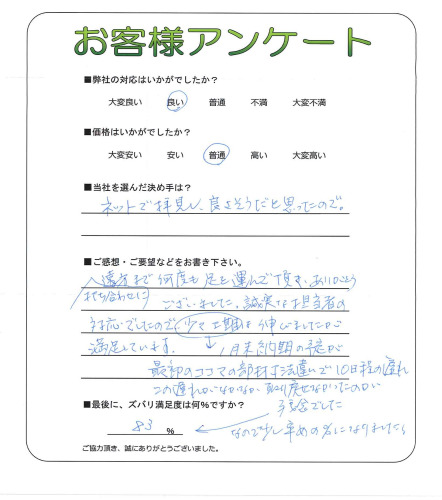 お客様アンケート
■弊社の対応はいかがでしたか？
大変良い 良い 普通 不満 大変不満
■価格はいかがでしたか？
大変安い 安い 普通 高い 大変高い
■当社を選んだ決め手は？
ネットで拝見し、良さそうだと思ったので。
■ご感想・ご要望などをお書き下さい。
遠方まで何度も足を運んで頂き、ありがとう
打ち合わせに
ございました。誠実な担当者の
対応でしたので少々工期は伸びましたが
満足しています。
↓ 月末納期の予定が
最初のココマの部材寸法違いで10日程の遅れ
この遅れがなかなか取り戻せなかったのが
残念でした
■最後に、ズバリ満足度は何%ですか？
83 %
なので少し辛めの%になりました
ご協力頂き、誠にありがとうございました。